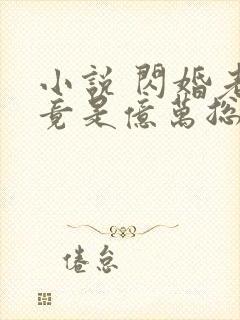 小說 閃婚老
竟是億萬總
倦怠